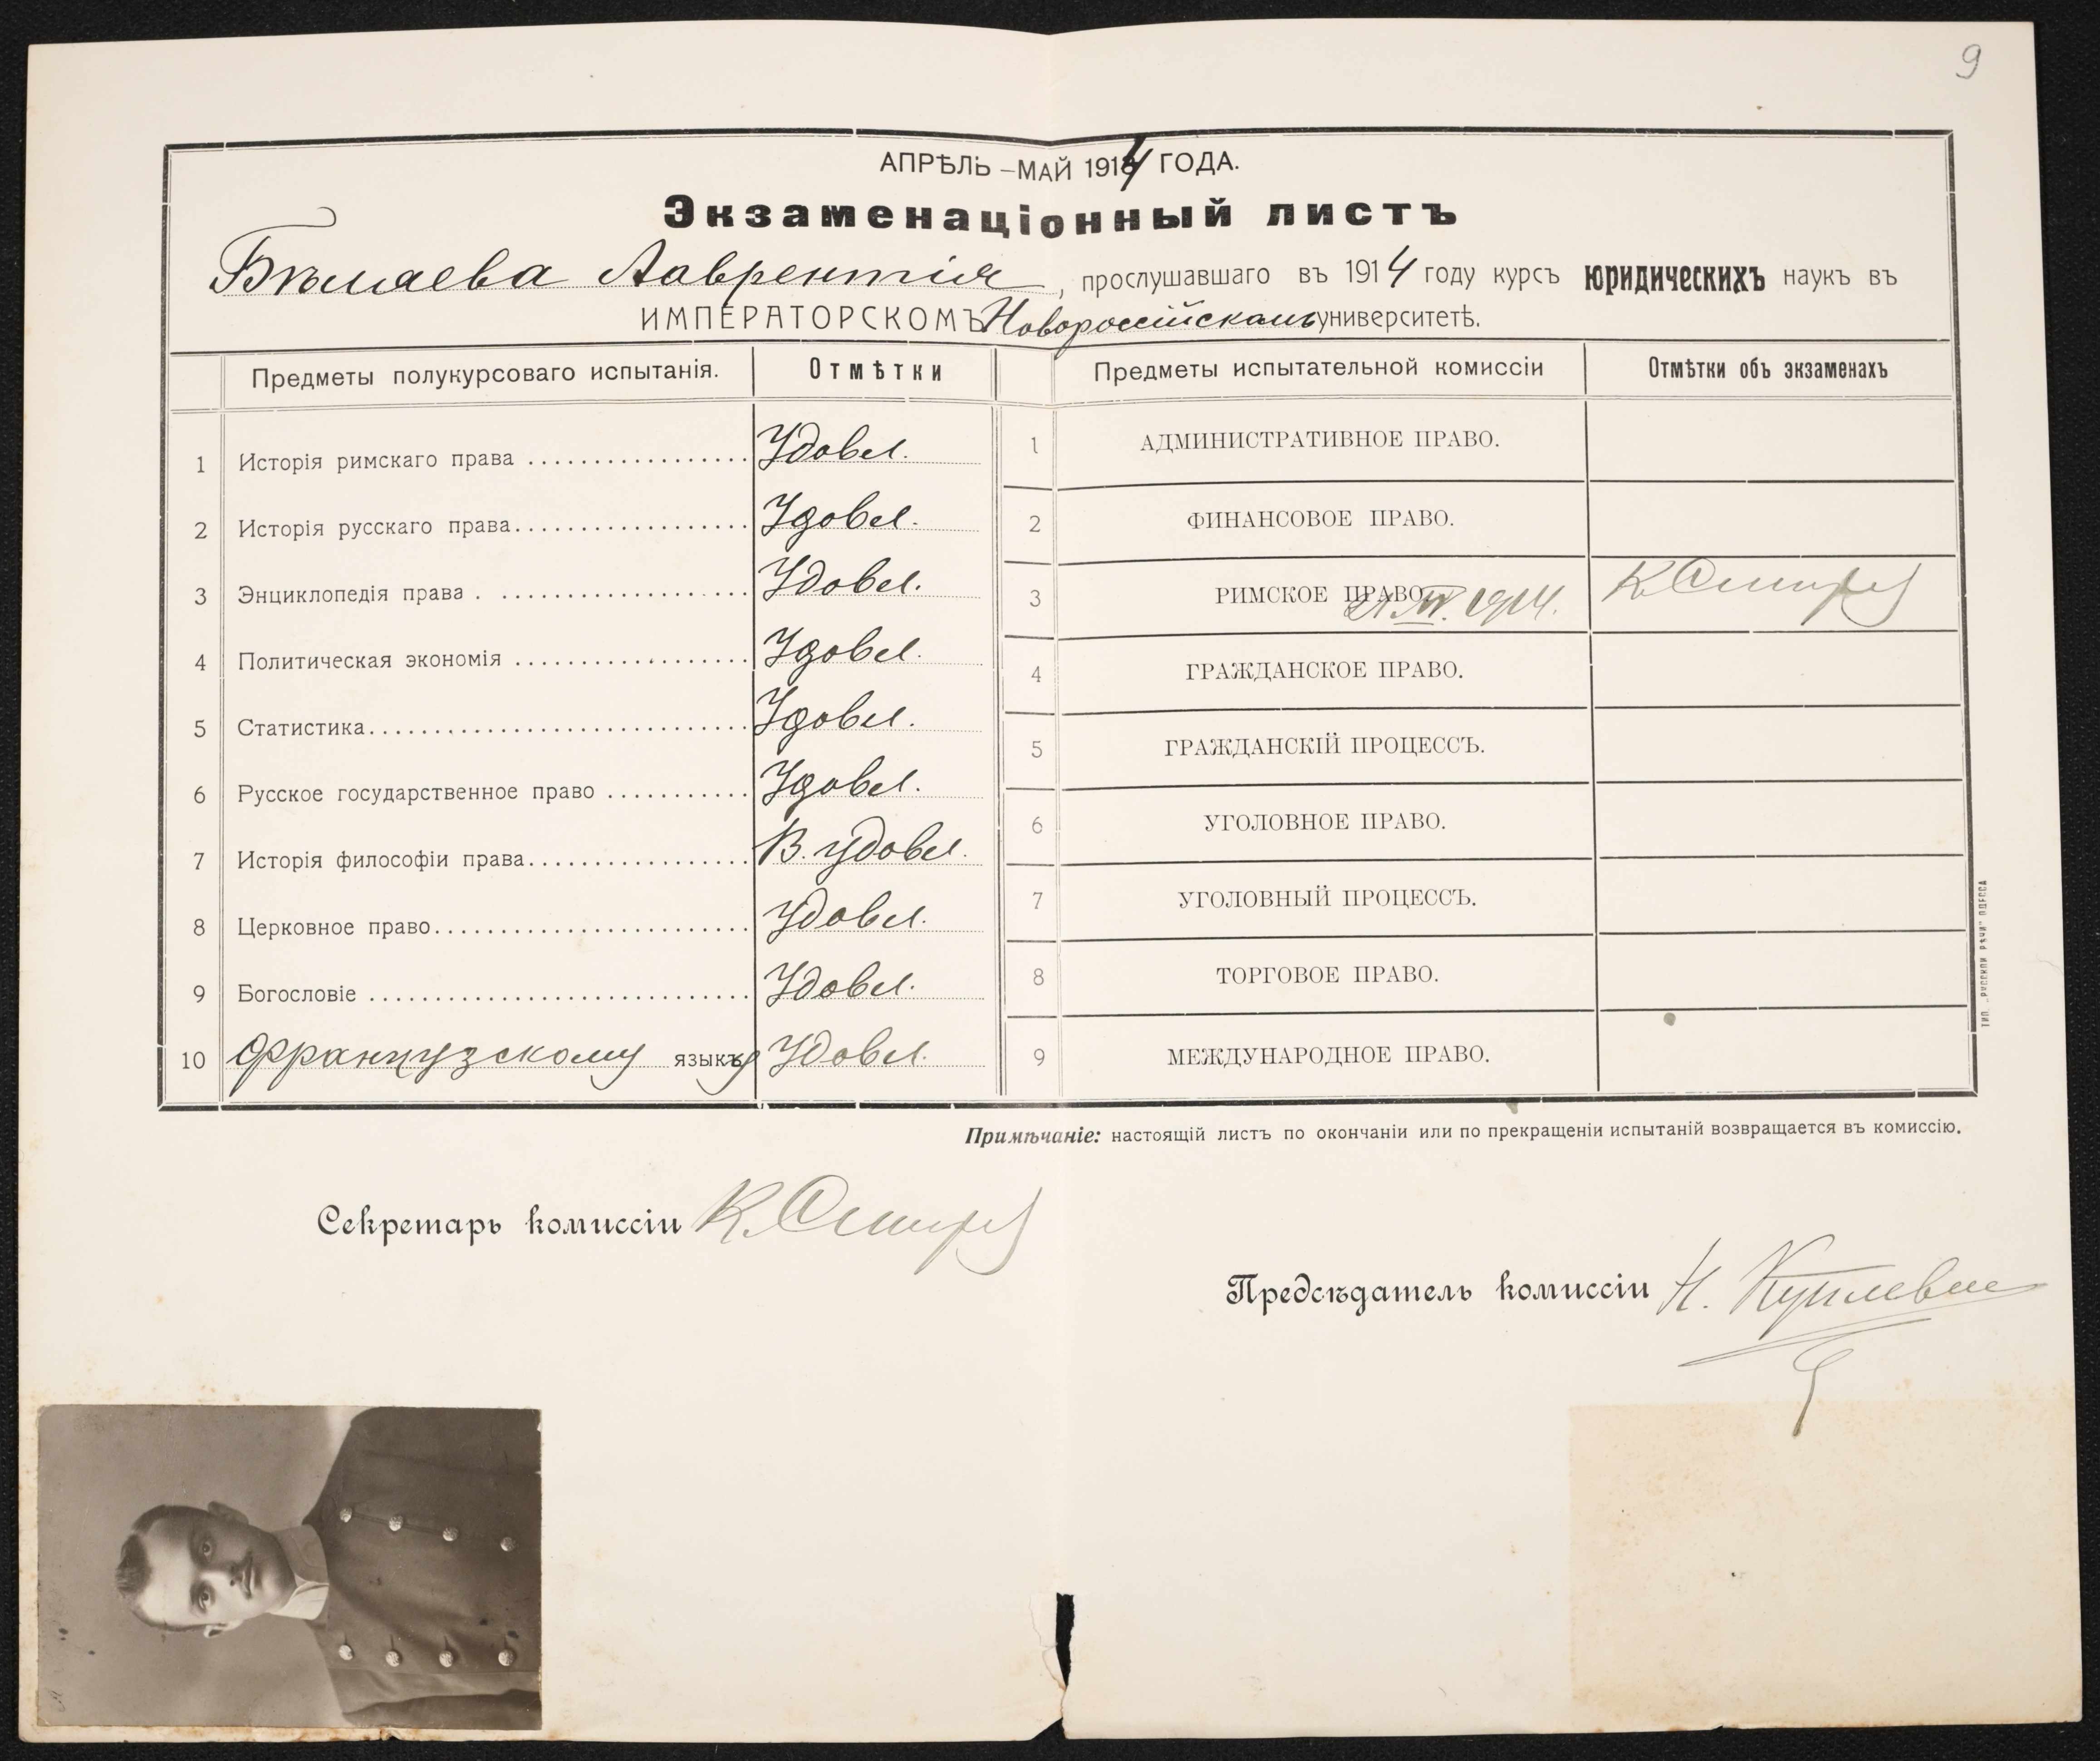 9
АПРѢЛЬ – МАЙ 1914 ГОДА.
Экзаменаціонный листъ
Бѣляева Лаврентія, прослушавшаго въ 1914 году курсъ юридическихъ наукъ въ
ИМПЕРАТОРСКОМЪ Новороссійскомъ университетѣ.
Предметы полукурсоваго испытанія. Отмѣтки Предметы испытательной комиссіи Отмѣтки объ экзаменахъ
1 Исторія римскаго права Удовл. 1 АДМИНИСТРАТИВНОЕ ПРАВО.
2 Исторія русскаго права Удовл. 2 ФИНАНСОВОЕ ПРАВО.
3 Энциклопедія права Удовл. 3 РИМСКОЕ ПРАВО 1914.
4 Политическая экономія Удовл. 4 ГРАЖДАНСКОЕ ПРАВО.
5 Статистика Удовл. 5 ГРАЖДАНСКІЙ ПРОЦЕССЪ.
6 Русское государственное право Удовл. 6 УГОЛОВНОЕ ПРАВО.
7 Исторія философіи права В. удовл. 7 УГОЛОВНЫЙ ПРОЦЕССЪ.
8 Церковное право Удовл. 8 ТОРГОВОЕ ПРАВО.
9 Богословіе Удовл. 9 МЕЖДУНАРОДНОЕ ПРАВО.
10 Французскому языку Удовл.
Примѣчаніе: настоящій листъ по окончаніи или по прекращеніи испытаній возвращается въ комиссію.
Секретарь комиссіи К.
Предсѣдатель комиссіи Н.
ТИП. „РУССКОЙ РѢЧИ" ОДЕССА